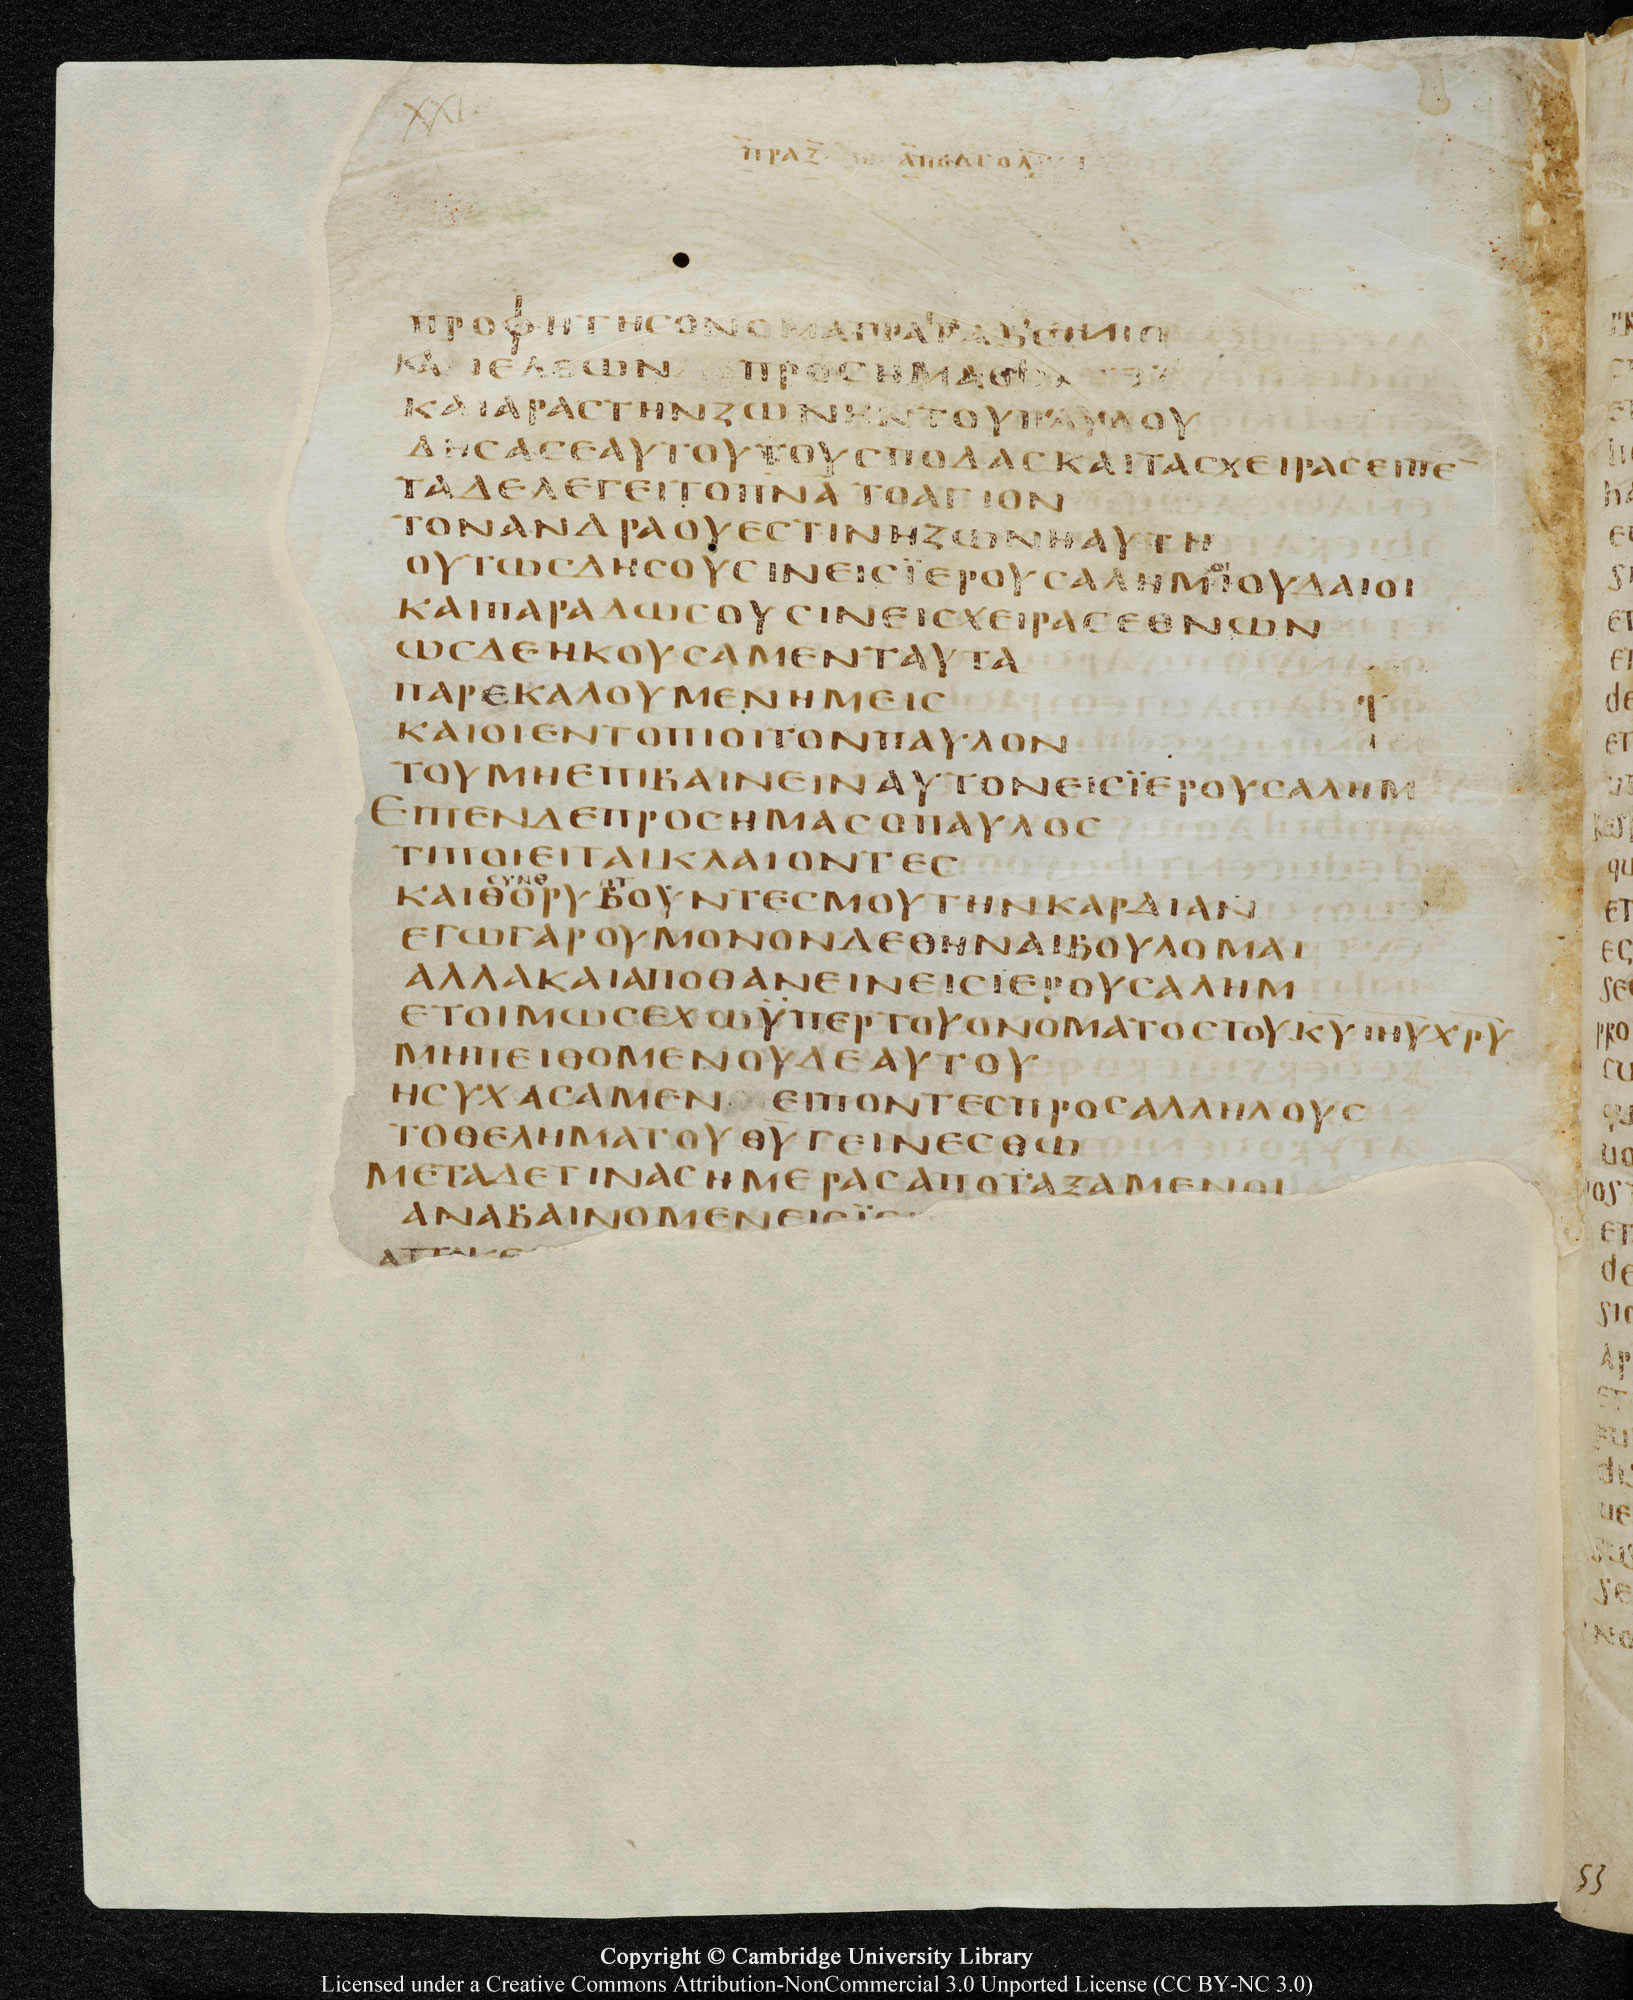 XXI
ΠΡΑΞ ΑΠΟΣΤΟΛ
ΠΡΟΦΗΤΗΣΟΝΟΜΑΤΙ
ΕΛΘΩΝ ΠΡΟΣΗΜΑΣ
ΚΑΙΑΡΑΣΤΗΝΖΩΝΗΝΤΟΥΠΑΥΛΟΥ
ΔΗΣΑΣΕΑΥΤΟΥΤΟΥΣΠΟΔΑΣΚΑΙΤΑΣΧΕΙΡΑΣΕΙΠΕ̅
ΤΑΔΕΛΕΓΕΙΤΟΠΝΑ ΤΟΑΓΙΟΝ
ΤΟΝΑΝΔΡΑΟΥΕΣΤΙΝΗΖΩΝΗΑΥΤΗ
ΟΥΤΩΣΔΗΣΟΥΣΙΝΕΙΣΪΕΡΟΥΣΑΛΗΜΙΟΥΔΑΙΟΙ
ΚΑΙΠΑΡΑΔΩΣΟΥΣΙΝΕΙΣΧΕΙΡΑΣΕΘΝΩΝ
ΩΣΔΕΗΚΟΥΣΑΜΕΝΤΑΥΤΑ
ΠΑΡΕΚΑΛΟΥΜΕΝΗΜΕΙΣ
ΚΑΙΟΙΕΝΤΟΠΙΟΙΤΟΝΠΑΥΛΟΝ
ΤΟΥΜΗΕΠΙΒΑΙΝΕΙΝΑΥΤΟΝΕΙΣΪΕΡΟΥΣΑΛΗΜ
ΕΙΠΕΝΔΕΠΡΟΣΗΜΑΣΟΠΑΥΛΟΣ
ΤΙΠΟΙΕΙΤΑΙΚΛΑΙΟΝΤΕΣ
ΣΥΝΘ ΠΤ
ΚΑΙΘΟΡΥΒΟΥΝΤΕΣΜΟΥΤΗΝΚΑΡΔΙΑΝ
ΕΓΩΓΑΡΟΥΜΟΝΟΝΔΕΘΗΝΑΙΒΟΥΛΟΜΑΙ
ΑΛΛΑΚΑΙΑΠΟΘΑΝΕΙΝΕΙΣΙΕΡΟΥΣΑΛΗΜ
ΕΤΟΙΜΩΣΕΧΩΫΠΕΡΤΟΥΟΝΟΜΑΤΟΣΤΟΥΚΥΙΗΥΧΡΥ
ΜΗΠΕΙΘΟΜΕΝΟΥΔΕΑΥΤΟΥ
ΗΣΥΧΑΣΑΜΕΝ ΕΙΠΟΝΤΕΣΠΡΟΣΑΛΛΗΛΟΥΣ
ΤΟΘΕΛΗΜΑΤΟΥΘΥΓΕΙΝΕΣΘΩ
ΜΕΤΑΔΕΤΙΝΑΣΗΜΕΡΑΣΑΠΟΤΑΞΑΜΕΝΟΙ
ΑΝΑΒΑΙΝΟΜΕΝΕΙΣΪΕ
53
Copyright © Cambridge University Library
Licensed under a Creative Commons Attribution-NonCommercial 3.0 Unported License (CC BY-NC 3.0)